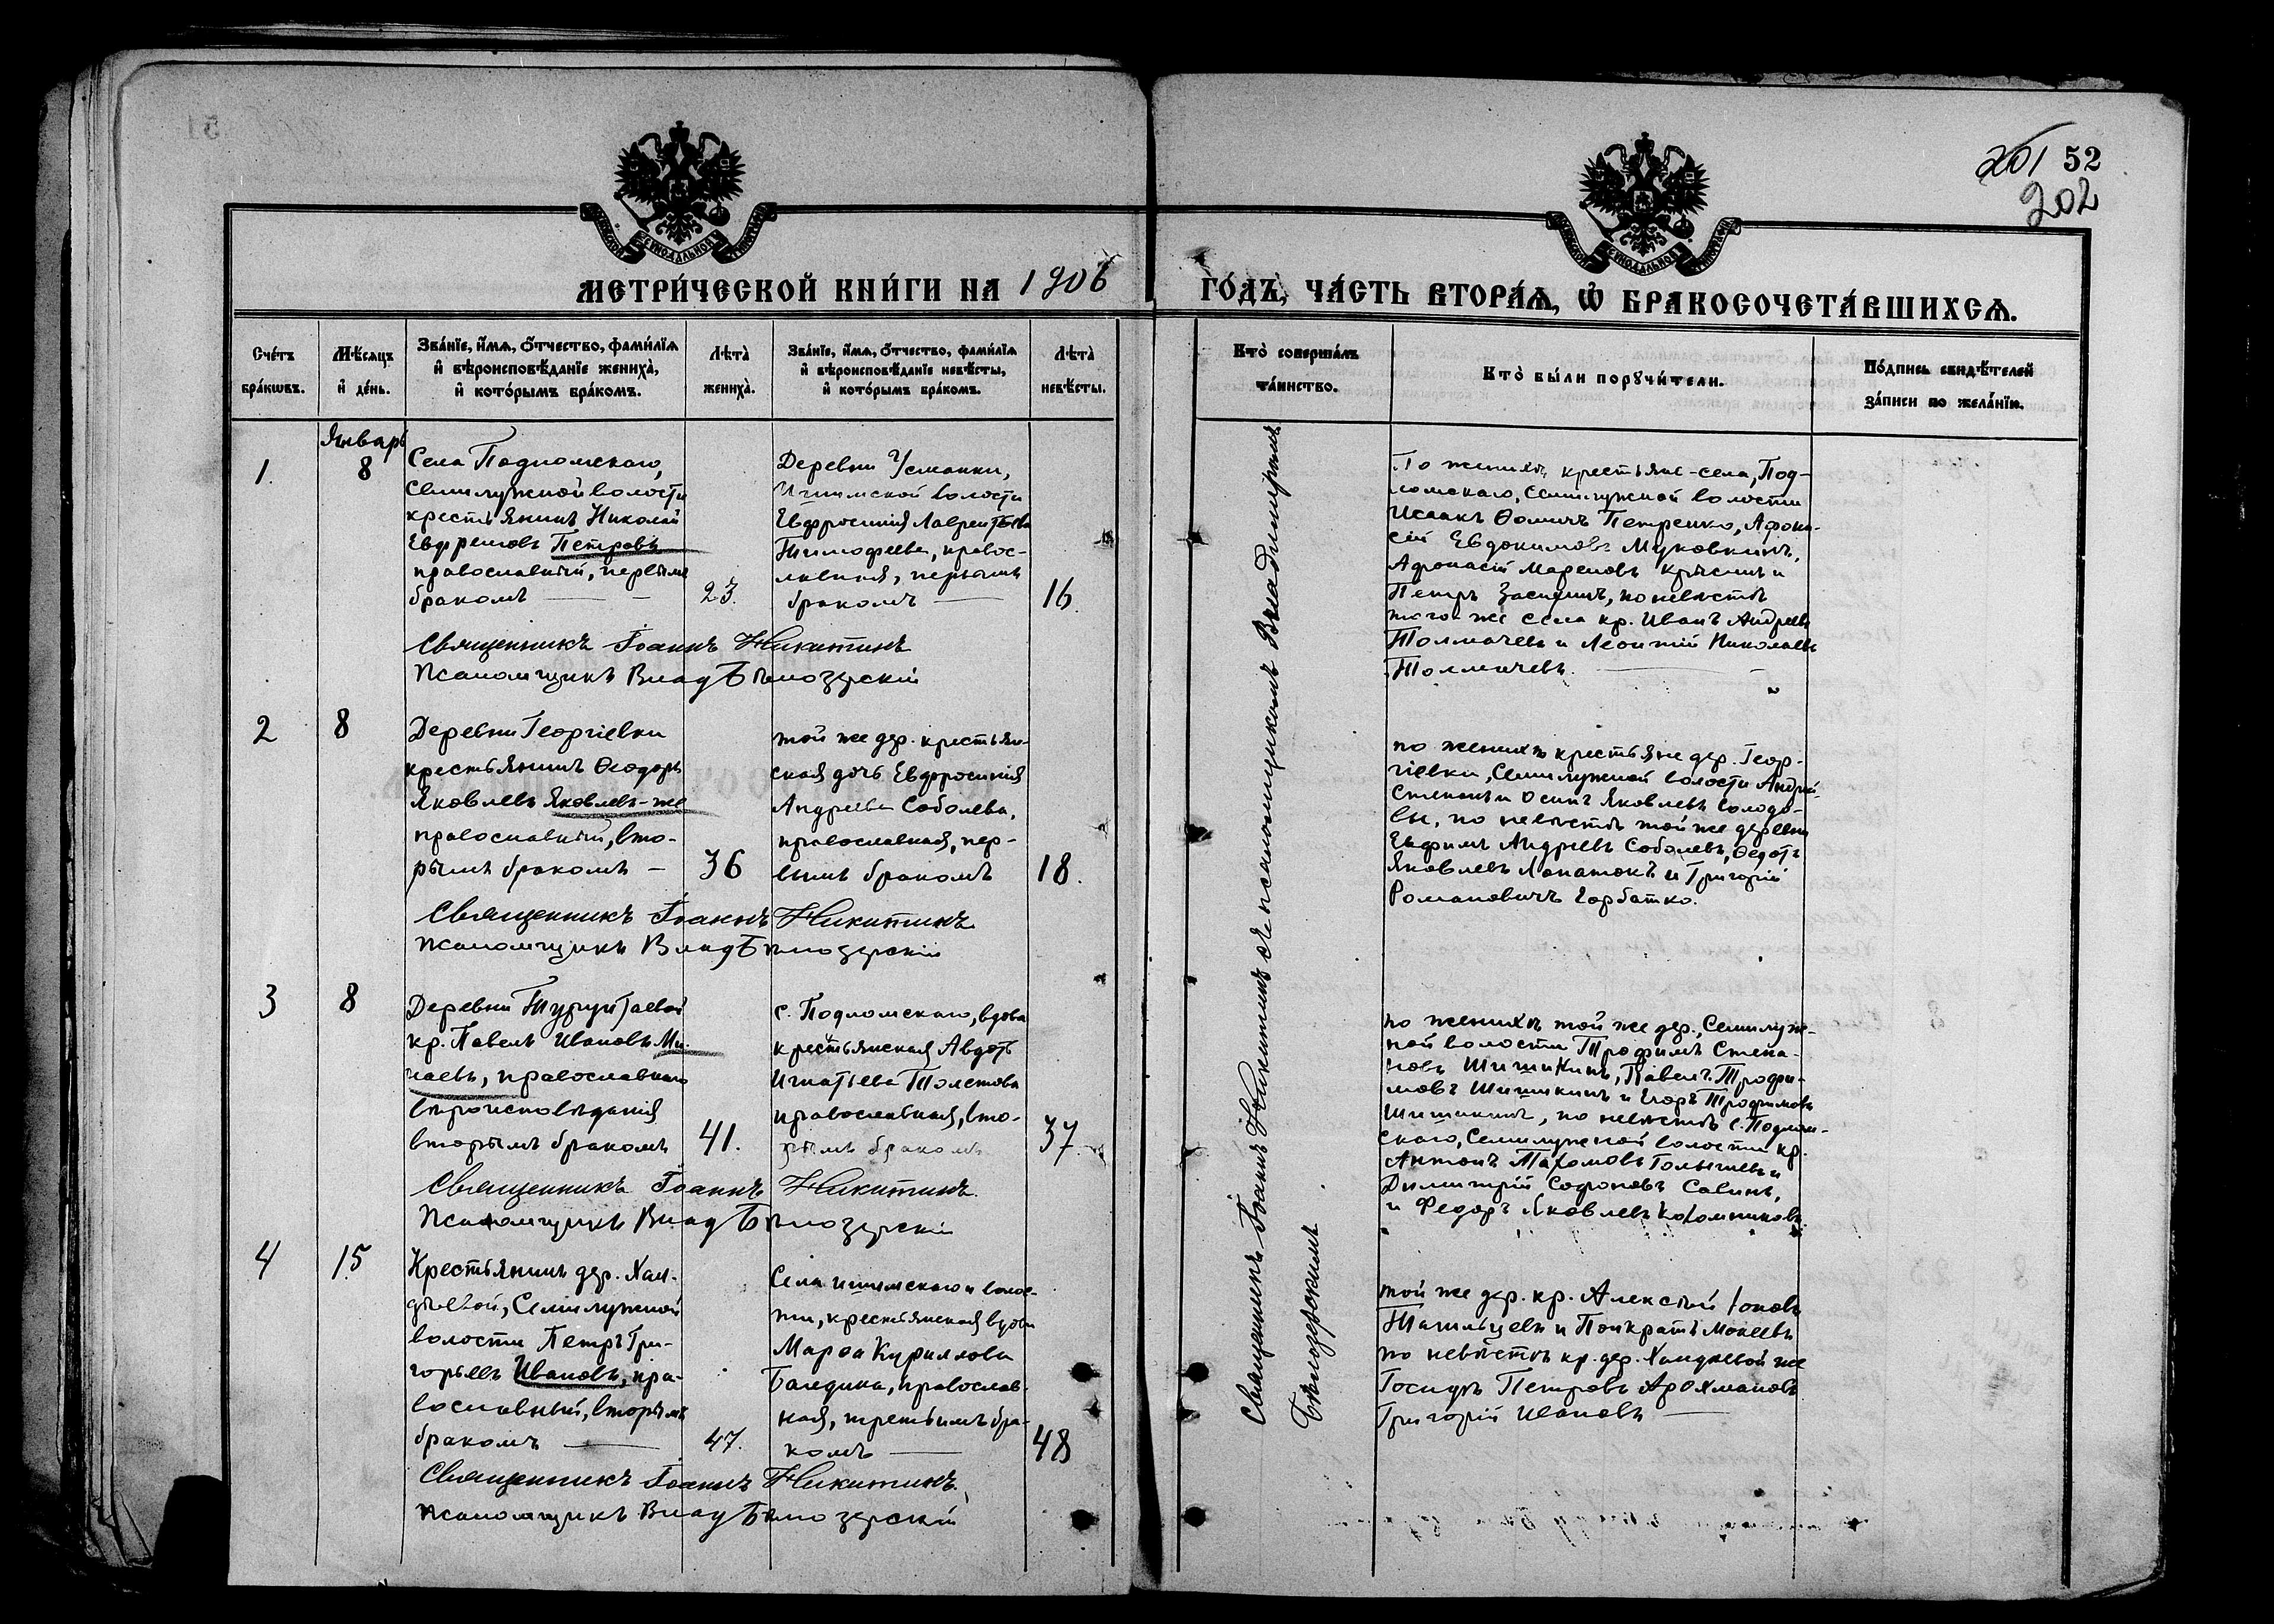 201 52
202
МЕТРИ́ЧЕСКОЙ КНИ́ГИ НА 1906 ГО́ДЪ, ЧА́СТЬ ВТОРА́Я, Ѡ҆ БРАКОСОЧЕТА́ВШИХСѦ.
Сче́тъ бра́кѡвъ.
Мѣ́сяцъ и҆ де́нь.
Зва́нїе, и҆́мѧ, о҆́тчество, фами́лїѧ
и҆ вѣроисповѣ́данїе жениха̀,
и҆ кото́рымъ бра́комъ.
Лѣта̀ жениха̀.
Зва́нїе, и҆́мѧ, о҆́тчество, фами́лїѧ
и҆ вѣроисповѣ́данїе невѣ́сты,
и҆ кото́рымъ бра́комъ.
Лѣта̀ невѣ́сты.
Кто̀ соверша́лъ та́инство.
Кто̀ бы́ли порꙋчи́тели.
По́дпись свидѣ́телей
за́писи по жела́нїю.
Январь
1. 8
Села Подломскаго,
Семилужной волости
крестьянинъ Николай
Евфремовъ Петровъ
православный, первымъ
бракомъ — 23.
Деревни Усманки,
Ишимской волости
Евфросинія Лаврентьева
Тимофеева, правос-
лавная, первымъ
бракомъ — 16.
По женихѣ, крестьяне села, Под-
ломскаго, Семилужной волости
Исаакъ Ѳомичъ Петренко, Афона-
сій Евдокимовъ Муковкинъ,
Афонасій Марковъ и
Петръ, по невѣстѣ
того же села кр. Иванъ Андреевъ
Толмачевъ и Леонтій Николаевъ
Толмачевъ.
Священникъ Іоаннъ Никитинъ
Псаломщикъ Влад Бѣлозерскій
2 8
Деревни Георгіевки
крестьянинъ Ѳеодоръ
Яковлевъ Яковлевъ-же
православный, вто-
рымъ бракомъ — 36
той же дер. крестьян-
ская дочь Евфросинія
Андреева Соболева,
православная, пер-
вымъ бракомъ 18.
по женихѣ крестьяне дер. Геор-
гіевки, Семилужной волости Андрей,
Степанъ и Осипъ Яковлевъ Солодо-
вы, по невѣстѣ той же деревни
Евфимъ Андреевъ Соболевъ, Ѳедотъ
Яковлевъ Лопатокъ и Григорій
Романовичъ Горбатко.
Священникъ Іоаннъ Никитинъ
псаломщикъ Влад Бѣлозерскій
3 8
Деревни Турунтаевой
кр. Павелъ Ивановъ Ми-
наевъ, православнаго
вѣроисповѣданія
вторымъ бракомъ 41.
с. Подломскаго, вдова
крестьянская Авдотья
Игнатьева Толстова
православная, вто-
рымъ бракомъ 37
по женихѣ той же дер., Семилуж-
ной волости Трофимъ Степа-
новъ Шишкинъ, Павелъ Трофи-
мовъ Шишкинъ и Егоръ Трофимовъ
Шишкинъ, по невѣстѣ с. Подлом-
скаго, Семилужной волости кр.
Антонъ Пахомовъ Голышевъ и
Димитрій Софоновъ Савинъ,
и Федоръ Яковлевъ
Священникъ Іоаннъ Никитинъ.
Псаломщикъ Влад Бѣлозерскій
4 15
Крестьянинъ дер. Хал-
дѣевой, Семилужной
волости Петръ Гри-
горьевъ Ивановъ, пра-
вославный, вторымъ
бракомъ — 47.
Села Ишимскаго и волос-
ти, крестьянская вдова
Марѳа Кириллова
православ-
ная, третьимъ бра-
комъ — 48
той же дер. кр. Алексѣй Іоновъ
и Понкратъ Мокеевъ
по невѣстѣ кр. дер. Халдѣевой же
Петровъ
Григорій Ивановъ —
Священникъ Іоаннъ Никитинъ.
псаломщикъ Влад Бѣлозерскій
Священникъ Іоаннъ Никитинъ съ псаломщикомъ Владимиромъ
Бѣлозерскимъ